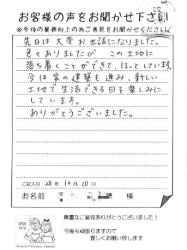 お客様の声をお聞かせ下さい
先日は大変お世話になりました。
色々ありましたが この土地に
落ち着くことができ、ほっとしています。
今は家の建築も進み、新しい
土地で生活できる日を楽しみに
しています。
ありがとうございました。
ご記入日 28年12月10日
お名前
貴重なご意見ありがとうございました!
今後も頑張りますので
宜しくお願い致します